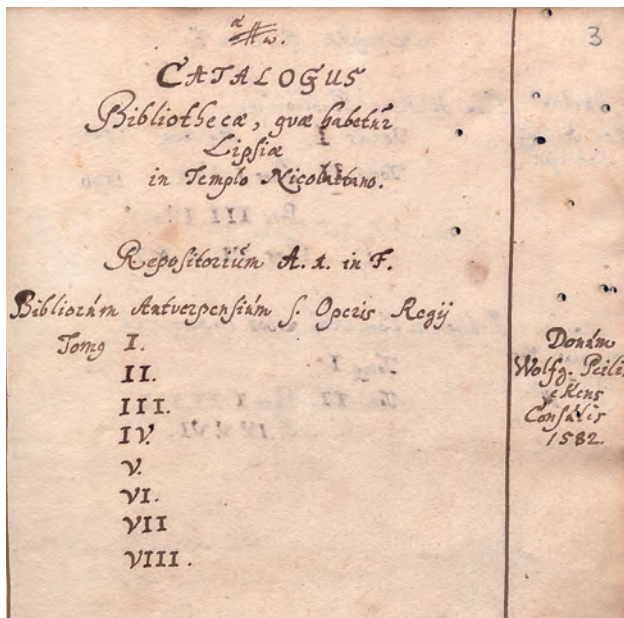 3
α ω.
CATALOGUS
Bibliothecæ, qvæ habetur
Lipsiæ
in Templo Nicolaitano.
Repositorium A. 1. in F.
Bibliorum Antverpensium s. Operis Regij
Tomg I.
II.
III.
IV.
V.
VI.
VII
VIII.
Donum
Wolfg. Peili
ckens
Consulis
1582.